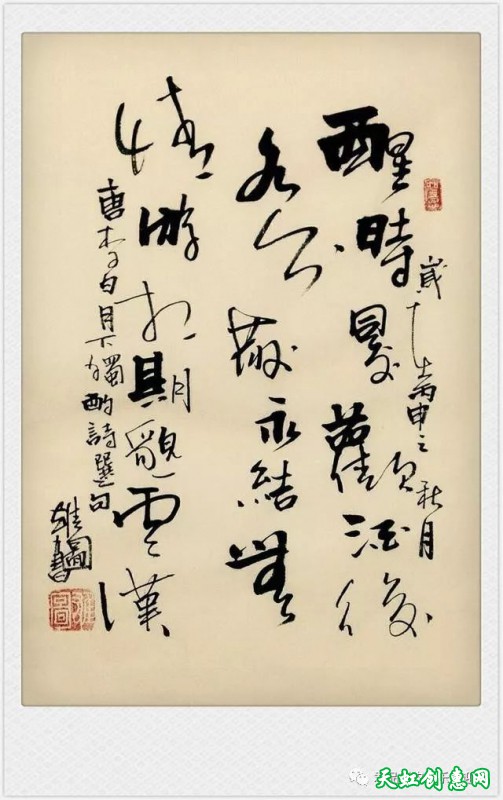 歲在丙申之秋月
醒時同交歡醉後
各分散永結無
情游相期邈雲漢
唐李白月下獨酌詩選句
天虹创意网